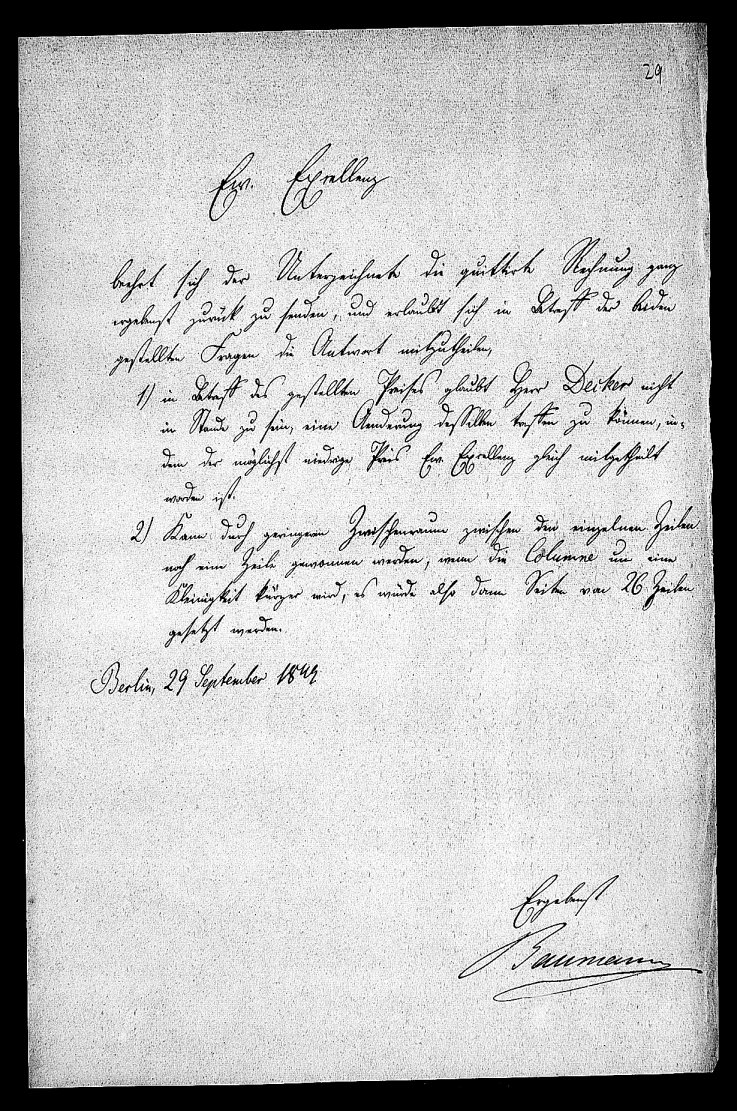 29
Ew. Excellenz
beehrt sich der Unterzeichnete die quittirte Rechnung ganz
ergebenst zurück zu senden, und erlaubt sich in Betreff der beiden
gestellten Fragen die Antwort mitzutheilen,
1) in Betreff des gestellten Preises glaubt Herr Decker nicht
im Stande zu sein, eine Aenderung desselben treffen zu können, in-
dem der möglichst niedrige Preis Ew. Excellenz gleich mitgetheilt
worden ist.
2) Kann durch geringern Zwischenraum zwischen den einzelnen Zeilen
noch eine Zeile gewonnen werden, wenn die Columne um eine
Kleinigkeit kürzer wird, es würde also dann Seiten von 26 Zeilen
gesetzt werden.
Berlin, 29 September
Ergebenst
Baumann